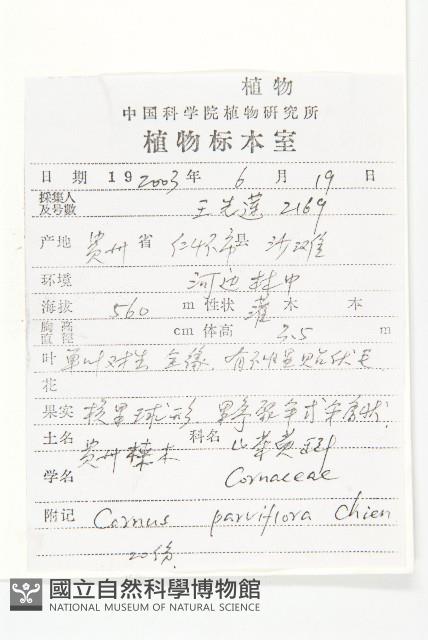 植物
中国科学院植物研究所
植物标本室
日 期 19 2003 年 6 月 19 日
採集人
及号數 王先蓮 2169
产地 贵州 省 仁怀市 县 沙滩
环境 河边林中
海拔 560 m 性状 灌 木 本
胸高
直径 cm 体高 2.5 m
叶 单叶对生 全缘, 有不明显贴伏毛
花
果实 核果球形
土名 贵州梾木 科名 山茱萸科
学名 Cornaceae
附记 Cornus parviflora Chien
20份
國立自然科學博物館
NATIONAL MUSEUM OF NATURAL SCIENCE